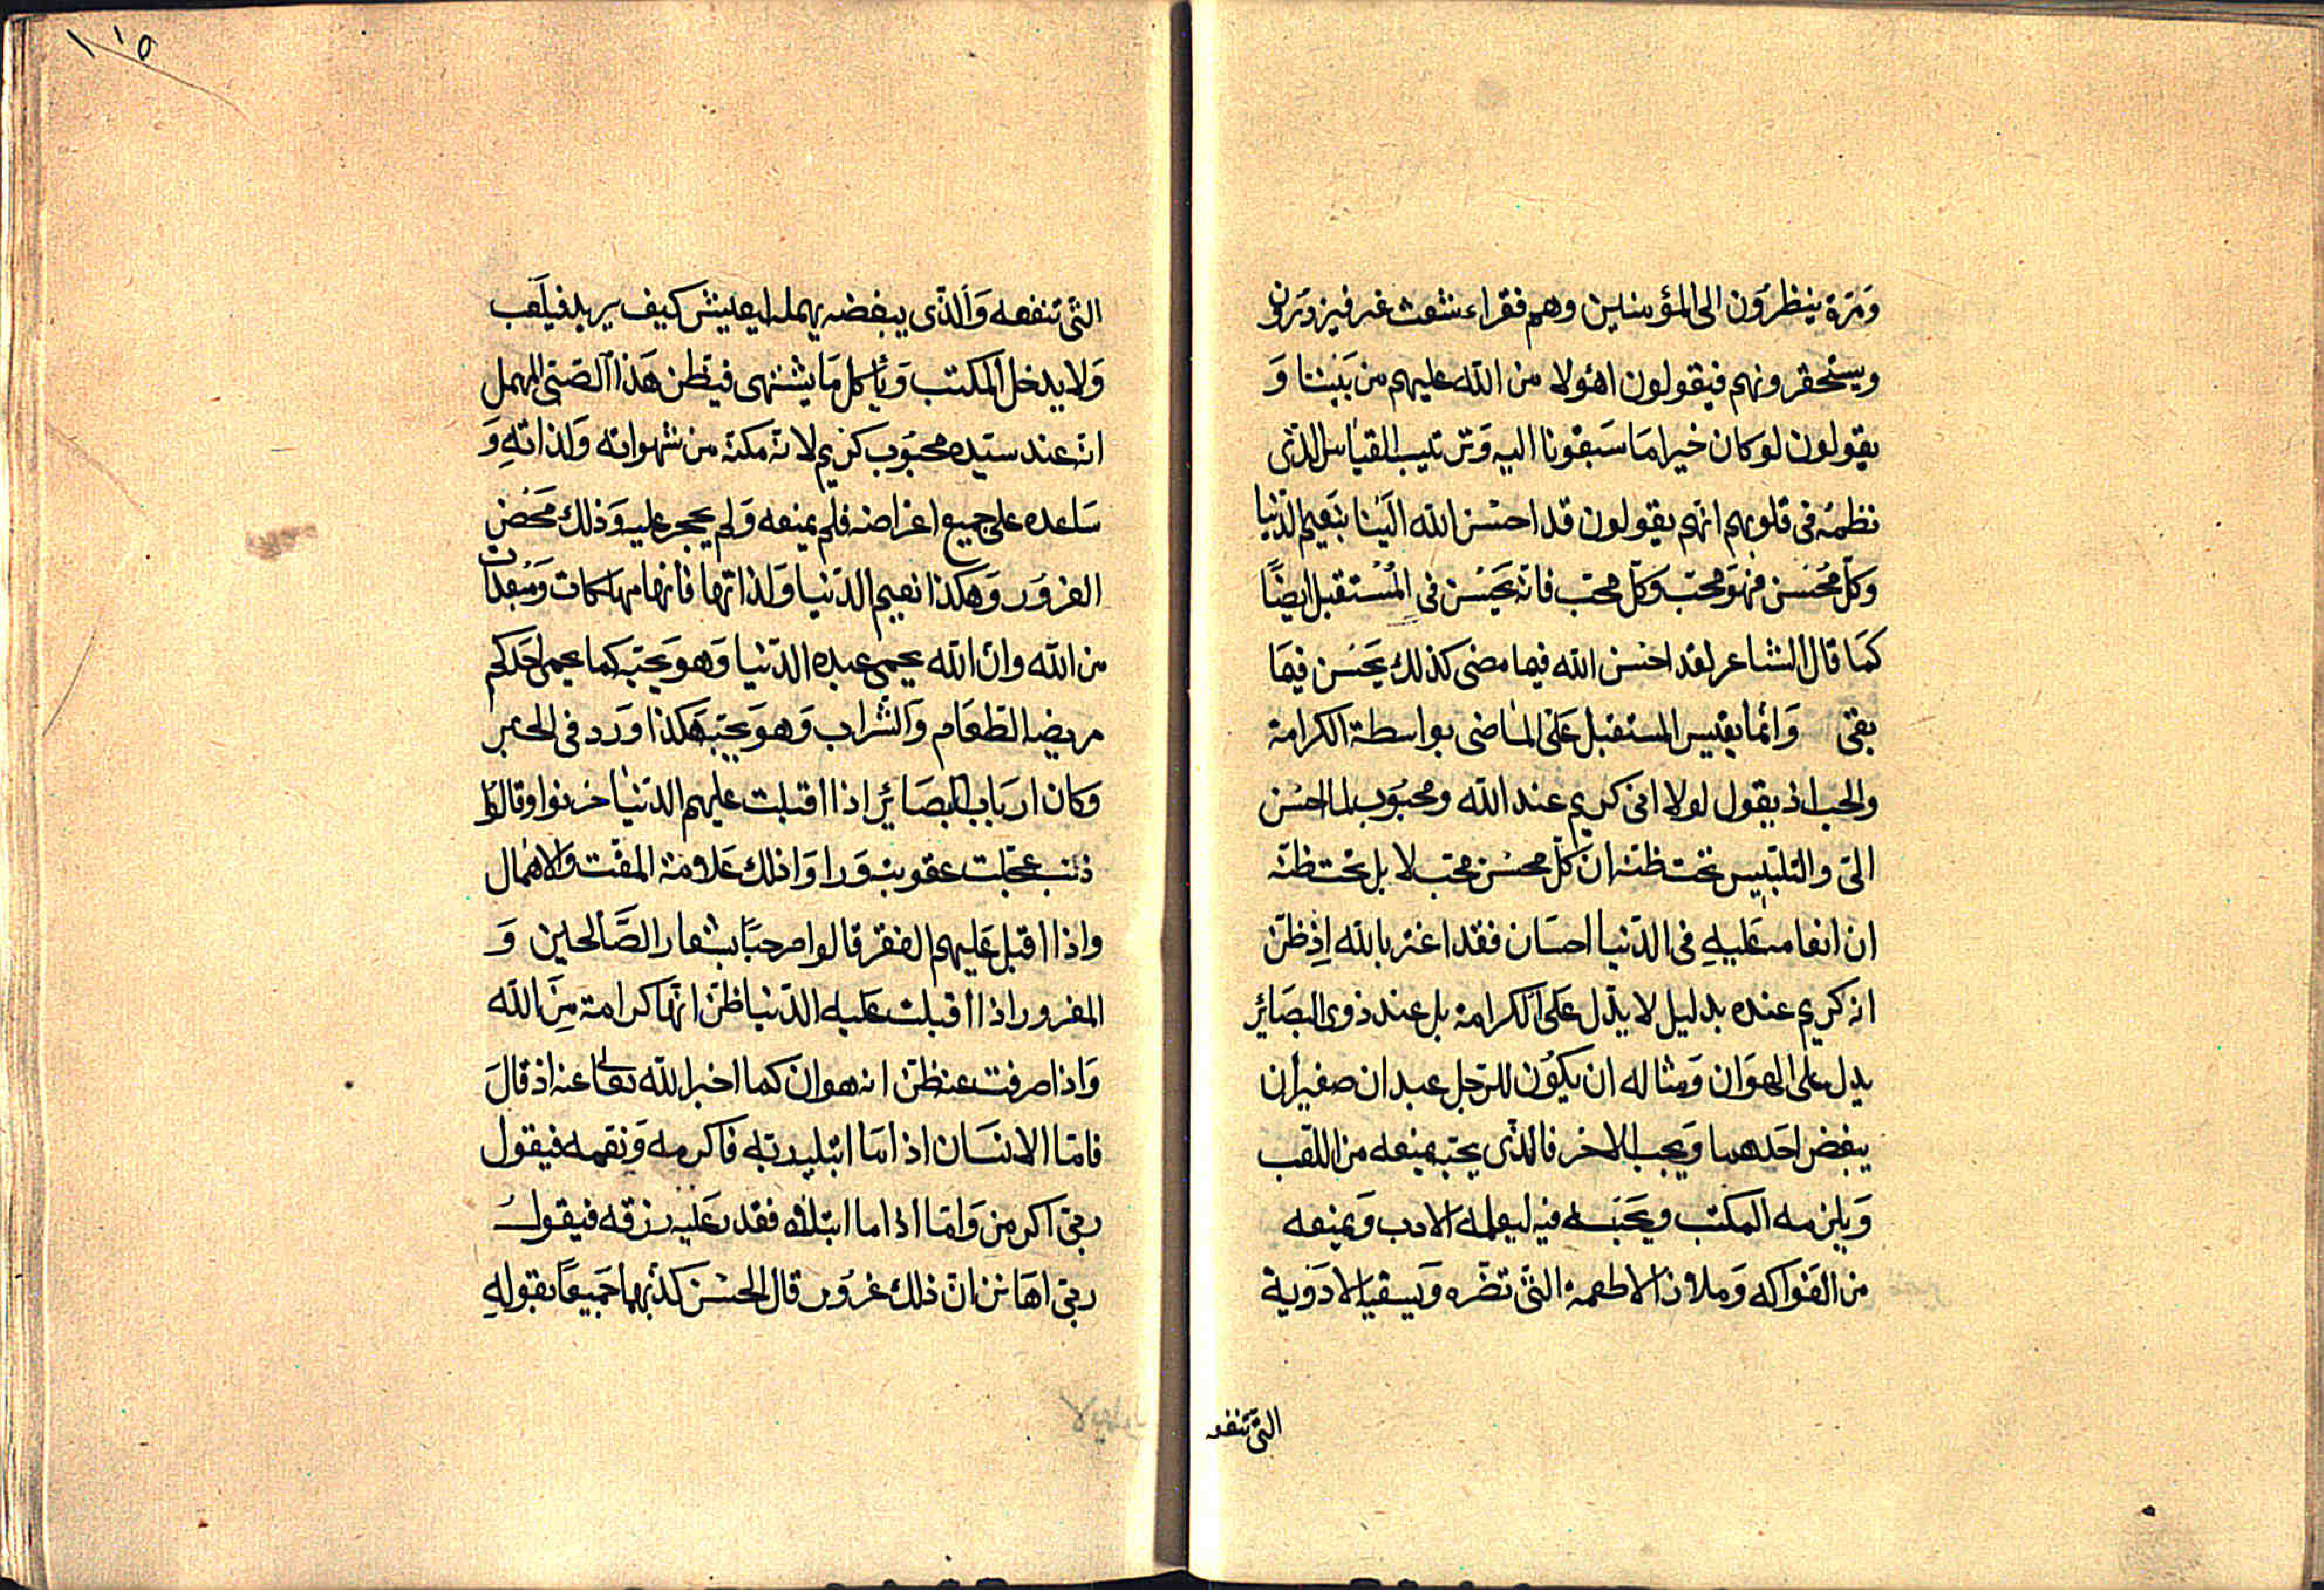 وَمَرّة ينظرُون الى المؤمنين وهم فقراء شعث غبر فيزدرَون
ويستحقرونهم فيقولون اهؤلا من الله عليهم من بَيننا وَ
يقولون لوكان خيرا مَا سَبقونا اليه وَترتيب القيَاس الذّى
نظمهُ فى قلوبهم انهم يقولون قد احسَن الله اليَنا بنَعيم الدّنيا
وكلّ مُحسن فهوَ محبّ وَكلّ محب فانه يحَسُن فى المُستقبل ايضًا
كمَا قال الشاعر لقد احسن الله فيما مضى كذلك يحَسُن فيمَا
بقى وَانمّا يقيس المستقبل عَلى الماضى بواسطة الكرامة
والحب اذ يقول لولا انى كريم عند الله ومحبوُب لما احسن
الىّ والتلبيس تحت ظنه ان كلّ محسن محب لا بل تحت ظنّه
ان انعامه عَليهِ فى الدّنيا احسَان فقد اغتر بالله اِذ ظنّ
انه كريم عنده بدليل لا يدّل عَلى الكرامة بل عند ذوى البصَائر
يدل على الهوَان وَمثاله ان يكوُن للرّجل عبدان صغيران
يبغض احَدهما وَيحب الاخر فالذّى يحبّه يمنعه من اللّعب
وَيلزمه المكتب ويحَبسه فيه ليعلمه الادب وَيمنعه
من الفَواكه وَملاذ الاطعمة التّى تضّره وَيسقيه الادَوية
التى تنفعه
التّى تنفعه وَالذّى يبغضه يهمله ليعيش كيف يريد فيلَعب
وَلا يدخل المكتب وَيأكل مَا يشتهى فيَظن هَذا الصَبّى المهمل
انه عند سيّده محبوُب كريم لانه مكنّه من شهواته وَلذاتهِ وَ
سَاعده على جميع اغراضه فلم يمنعه وَلم يحجر عليه وَذلك مَحَض
الغروَر وَهكذا نعيم الدّنيا وَلذاتها فانها مهلكات وَمبعدات
من الله وان الله يحمى عبده الدّنيا وَهو يحَبّه كما يحمى احَدكم
مريضه الطّعَام وَالشّراب وَهوَ يحَبّه هَكذا وَرد فى الخبر
وَكان اربَاب البصَائر اذا اقبلت عليهم الدّنيَا حزنوا وقالوُا
ذنب عجّلت عقوبته وَراوَا ذلك عَلامة المقت والاهمال
واذا اقبل عَليهم الفقر قالوا مرحبًا بشعار الصَّالحين وَ
المغرور اذا اقبلت عَليه الدّنيا ظنّ انهّا كرامة مِنَ الله
وَاذا صرفت عنه ظنّ انه هوان كما اخبر الله تعالى عنه اذ قالَ
فامّا الانسَان اذا مَا ابتليه ربّه فاكرمه وَنعّمه فيقول
ربى اكرمن وَامّا اذا ما ابتلاه فقدر عَليه رزقه فيقولُ
ربى اهَانن انّ ذلك غروُر قال الحسَن كذّبهما جَميعًا بقولهِ